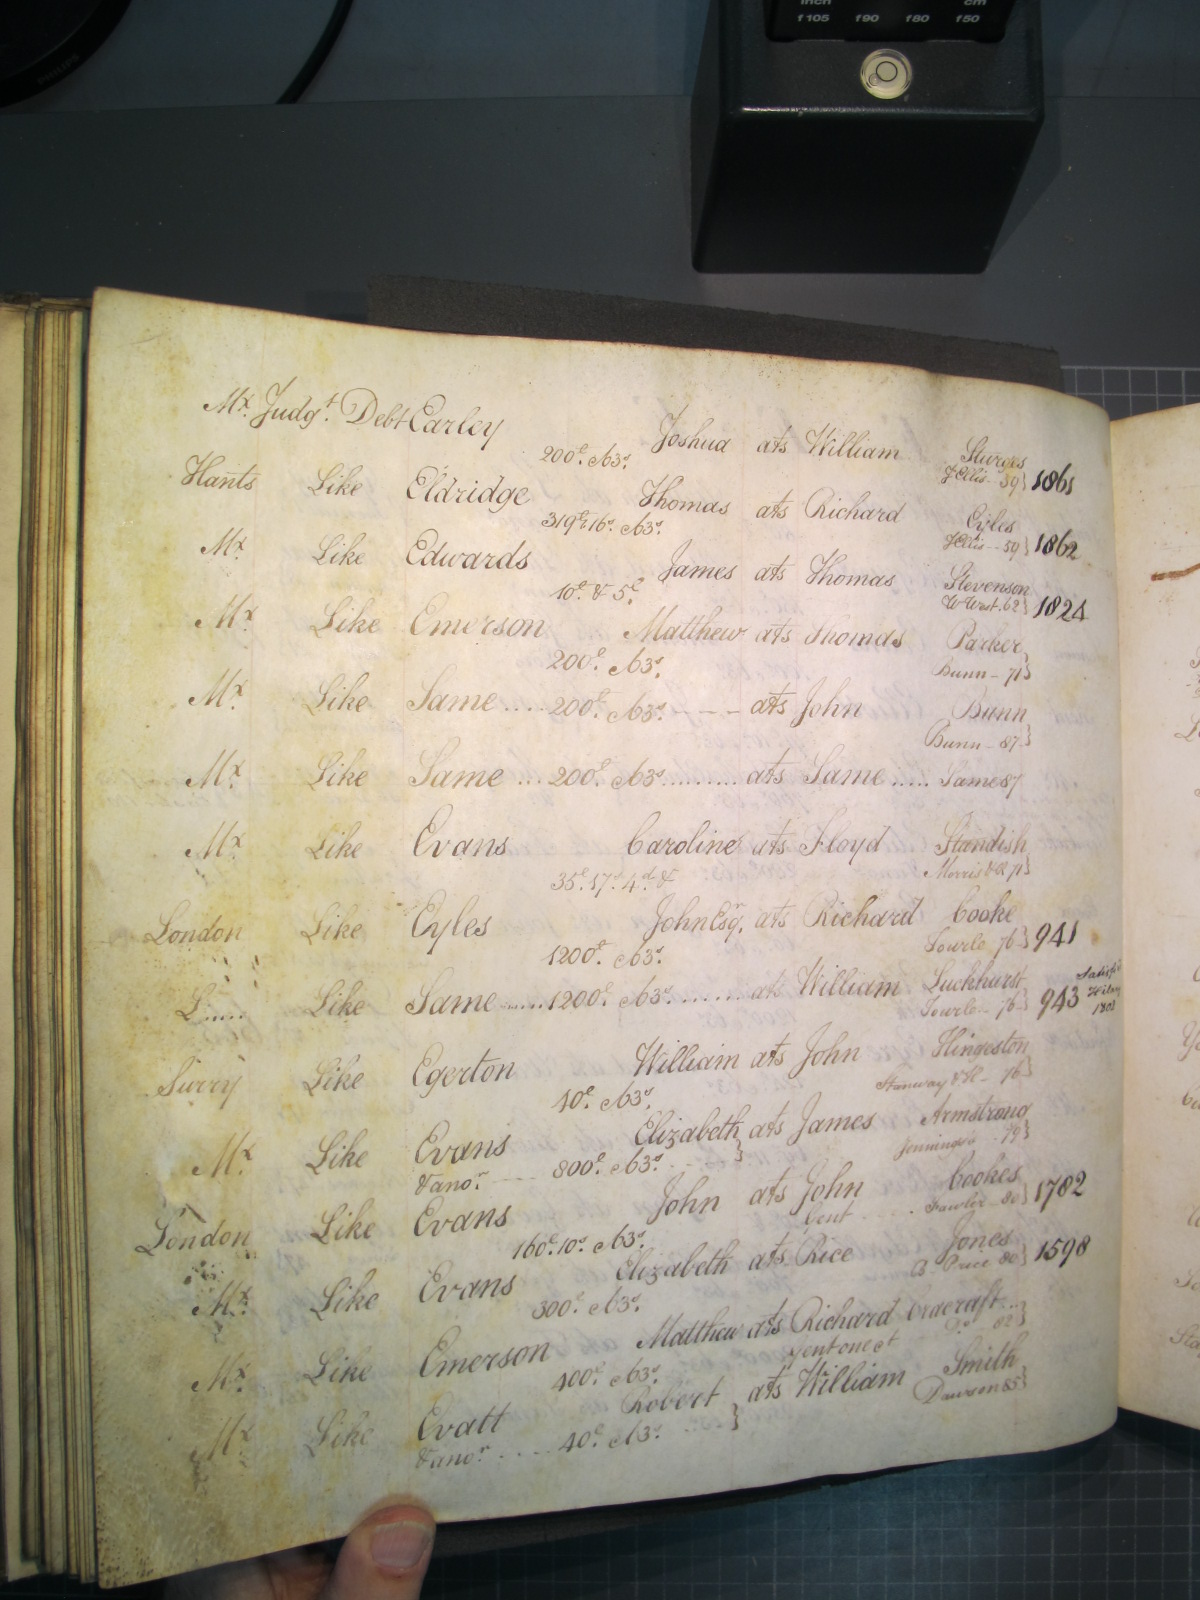 inch cm
f105 f90 f80 f50
PHILIPS
Mx. Judgt. Debt Earley Joshua ats William Sturges
200£. 63s. J Ellis - 59} 1861
Hants Like Eldridge Thomas ats Richard Eyles
319£ 16s. 63s. J Ellis - 59} 1862
Mx. Like Edwards James ats Thomas Stevenson
10£ & 5£. W West. 62} 1824
Mx. Like Emerson Matthew ats Thomas Parker
200£. 63s. Bunn - 71}
Mx. Like Same .... 200£. 63s. ---- ats John Bunn
Bunn - 87}
Mx. Like Same .... 200£. 63s. ........ ats Same ..... Same 87
Mx. Like Evans Caroline ats Floyd Standish
35£. 17s. 4d. & Morris & R 71}
London Like Eyles John Esqr. ats Richard Cooke
1200£. 63s. 76} 941
Like Same ...... 1200£. 63s. ....... ats William Luckhurst
76} 943 1803
Surry Like Egerton William ats John Hingeston
40£. 63s. Stanway & R - 76}
Mx. Like Evans Elizabeth} ats James Armstrong
& anor. ---- 800£. 63s. Jennings - 79}
London Like Evans John ats John Cookes
160£. 10s. 63s. Gent Fowler 80} 1782
Mx. Like Evans Elizabeth ats Rice Jones
300£. 63s. Price 80} 1598
Mx. Like Emerson Matthew ats Richard Cracraft
400£. 63s. Gent one &c 82}
Mx. Like Evatt Robert } ats William Smith
& anor. ..... 40£. 63s. Dawson 85}